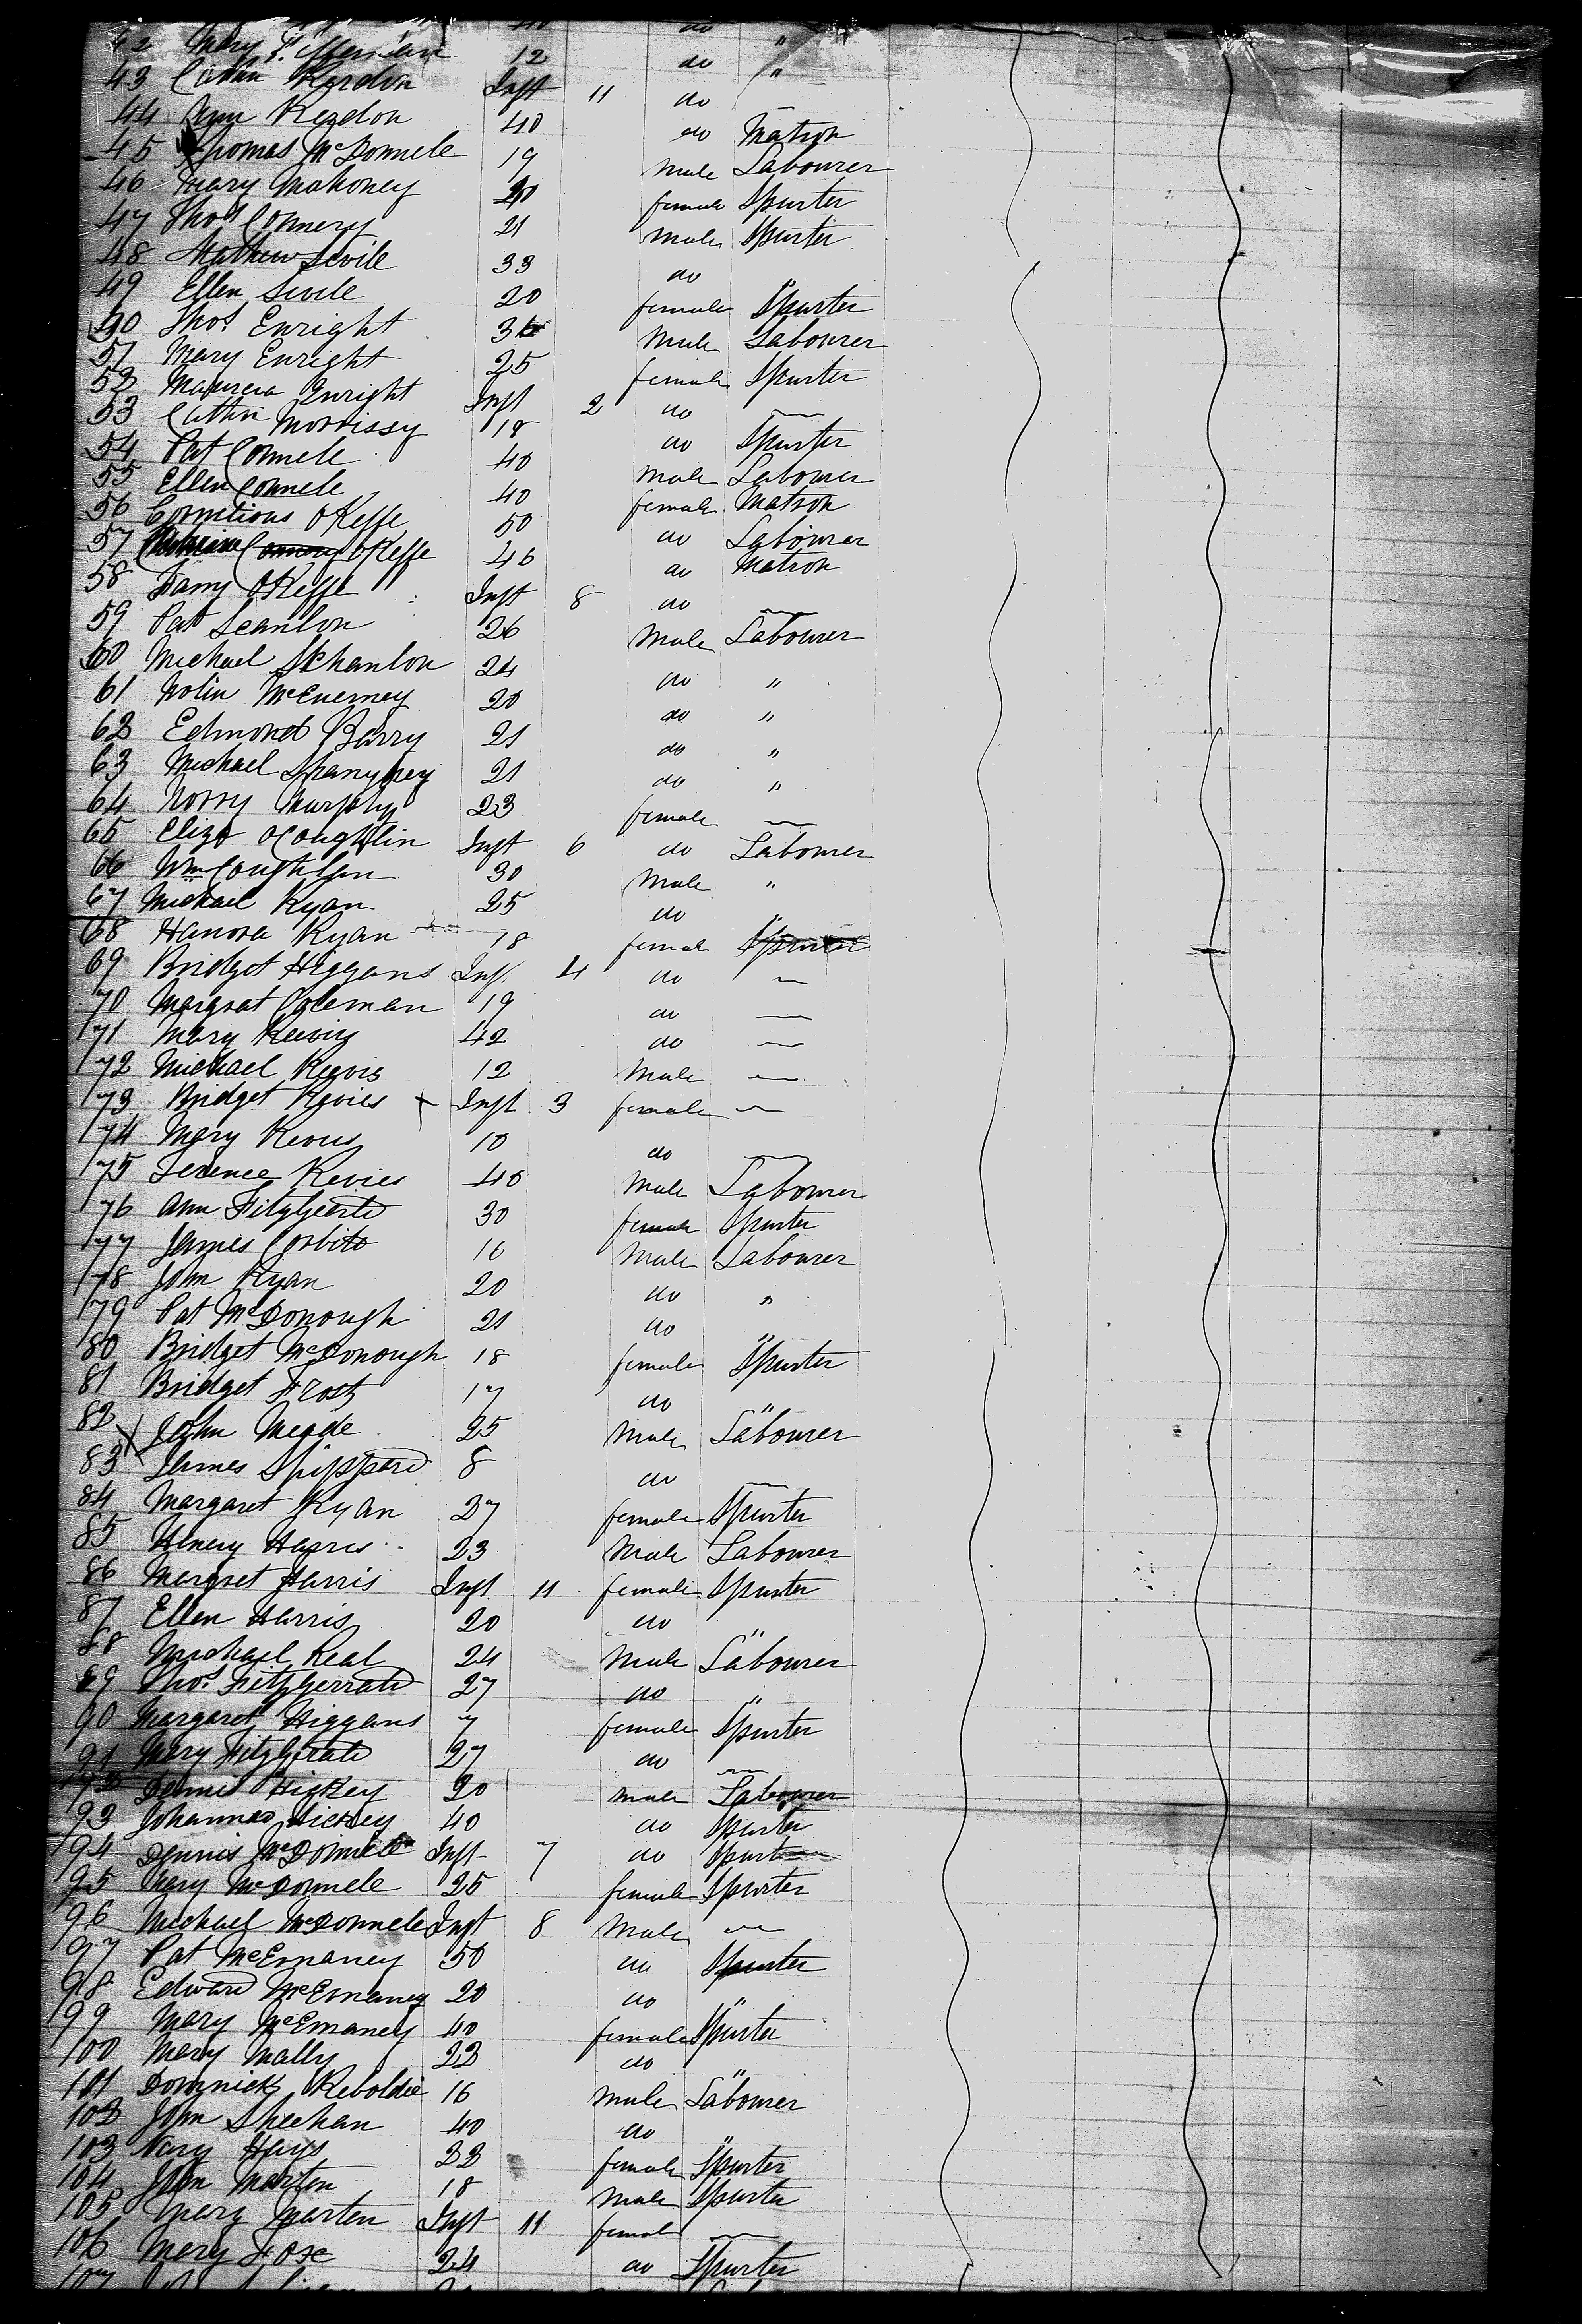 62 Mary Heffernan 12 do "
43 Cathn Kerdon Inft 11 do
44 Ann Kerdon 40 do Matron
45 Thomas McDonnele 19 Male Labourer
46 Mary Mahoney 20 female Spurter
47 Thos Connery 21 Male Spurter
48 Mathew Sevile 33 do "
49 Ellen Sevile 20 female Spurter
50 Thos. Enright 36 Male Labourer
51 Mary Enright 25 female Spurter
52 Enright Inft 2 do —
53 Cathn Morrissy 18 do Spurter
54 Pat Connele 40 Male Labourer
55 Ellen Connele 40 female Matron
56 OKeffe 50 do Labourer
57 Connory OKeffe 46 do Matron
58 Fanny OKeffe Inft 8 do —
59 Pat Scanlon 26 Male Labourer
60 Michael Schanlon 24 do "
61 Nolin McEnerney 20 do "
62 Edmond Barry 21 do "
63 Michael 21 do "
64 Norry Murphy 23 female —
65 Eliza OCoughlin Inft 6 do Labourer
66 Wm Coughlan 30 Male "
67 Michael Ryan 25 do "
68 Hanora Ryan 18 female Spurter
69 Bridget Higgans Inft 4 do —
70 Margrat Coleman 19 do —
71 Mary Keevis 42 do —
72 Michael Keevis 12 Male —
73 Bridget Kevies Inft 3 female —
74 Mary Kevies 10 do —
75 Terence Kevies 40 Male Labourer
76 Ann Fitzgerald 30 female Spurter
77 James Corbito 16 Male Labourer
78 John Ryan 20 do "
79 Pat McDonough 21 do "
80 Bridget McDonough 18 female Spurter
81 Bridget Frost 17 do "
82 John Meade 25 Male Labourer
83 James Shippard 8 do —
84 Margaret Ryan 27 female Spurter
85 Henery Harris 23 Male Labourer
86 Margret Harris Inft 11 female Spurter
87 Ellen Harris 20 do "
88 Michael Real 24 Male Labourer
89 Thos. Fitzgerrald 27 do "
90 Margaret Higgans 7 female Spurter
91 Mary Fitzgerald 27 do —
92 Dennis Hickey 20 male Labourer
93 Johannas Hickey 40 do Spurter
94 Dennis McDonnele Inft 7 do Spurter
95 Mary McDonnele 25 female Spurter
96 Michael McDonnele Inft 8 Male —
97 Pat McEnaney 50 do Spurter
98 Edward McEnaney 20 do "
99 Mary McEnaney 40 female Spurter
100 Mary Mally 23 do "
101 Domnick 16 male Labourer
102 John Sheehan 40 do "
103 Nary Hays 23 female Spurter
104 John Marten 18 Male Spurter
105 Mary Marten Inft 11 female —
106 Mary Fose 24 do Spurter